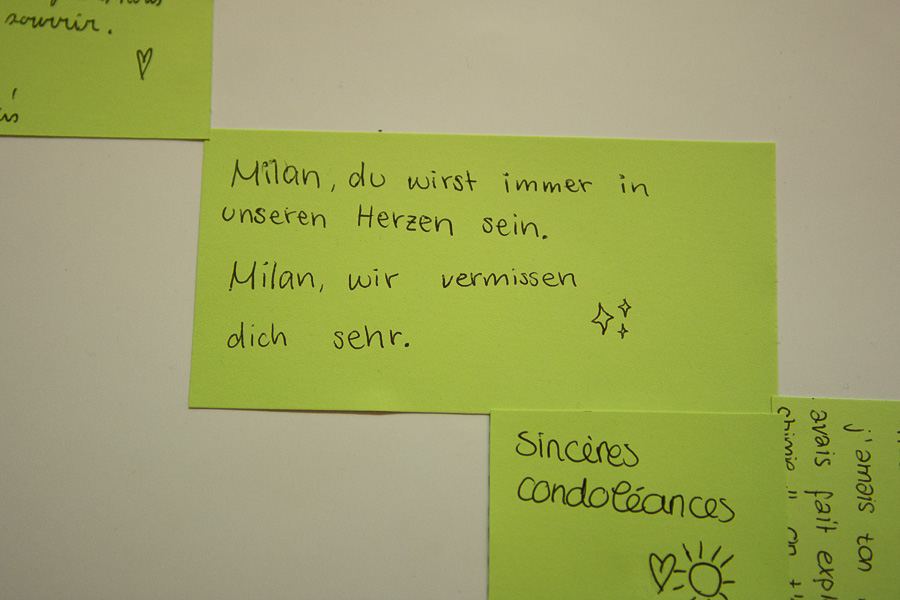 souvrir.
Milan, du wirst immer in
unseren Herzen sein.
Milan, wir vermissen
dich sehr.
Sincères
condoléances
j'amais ton
avais fait
chimie